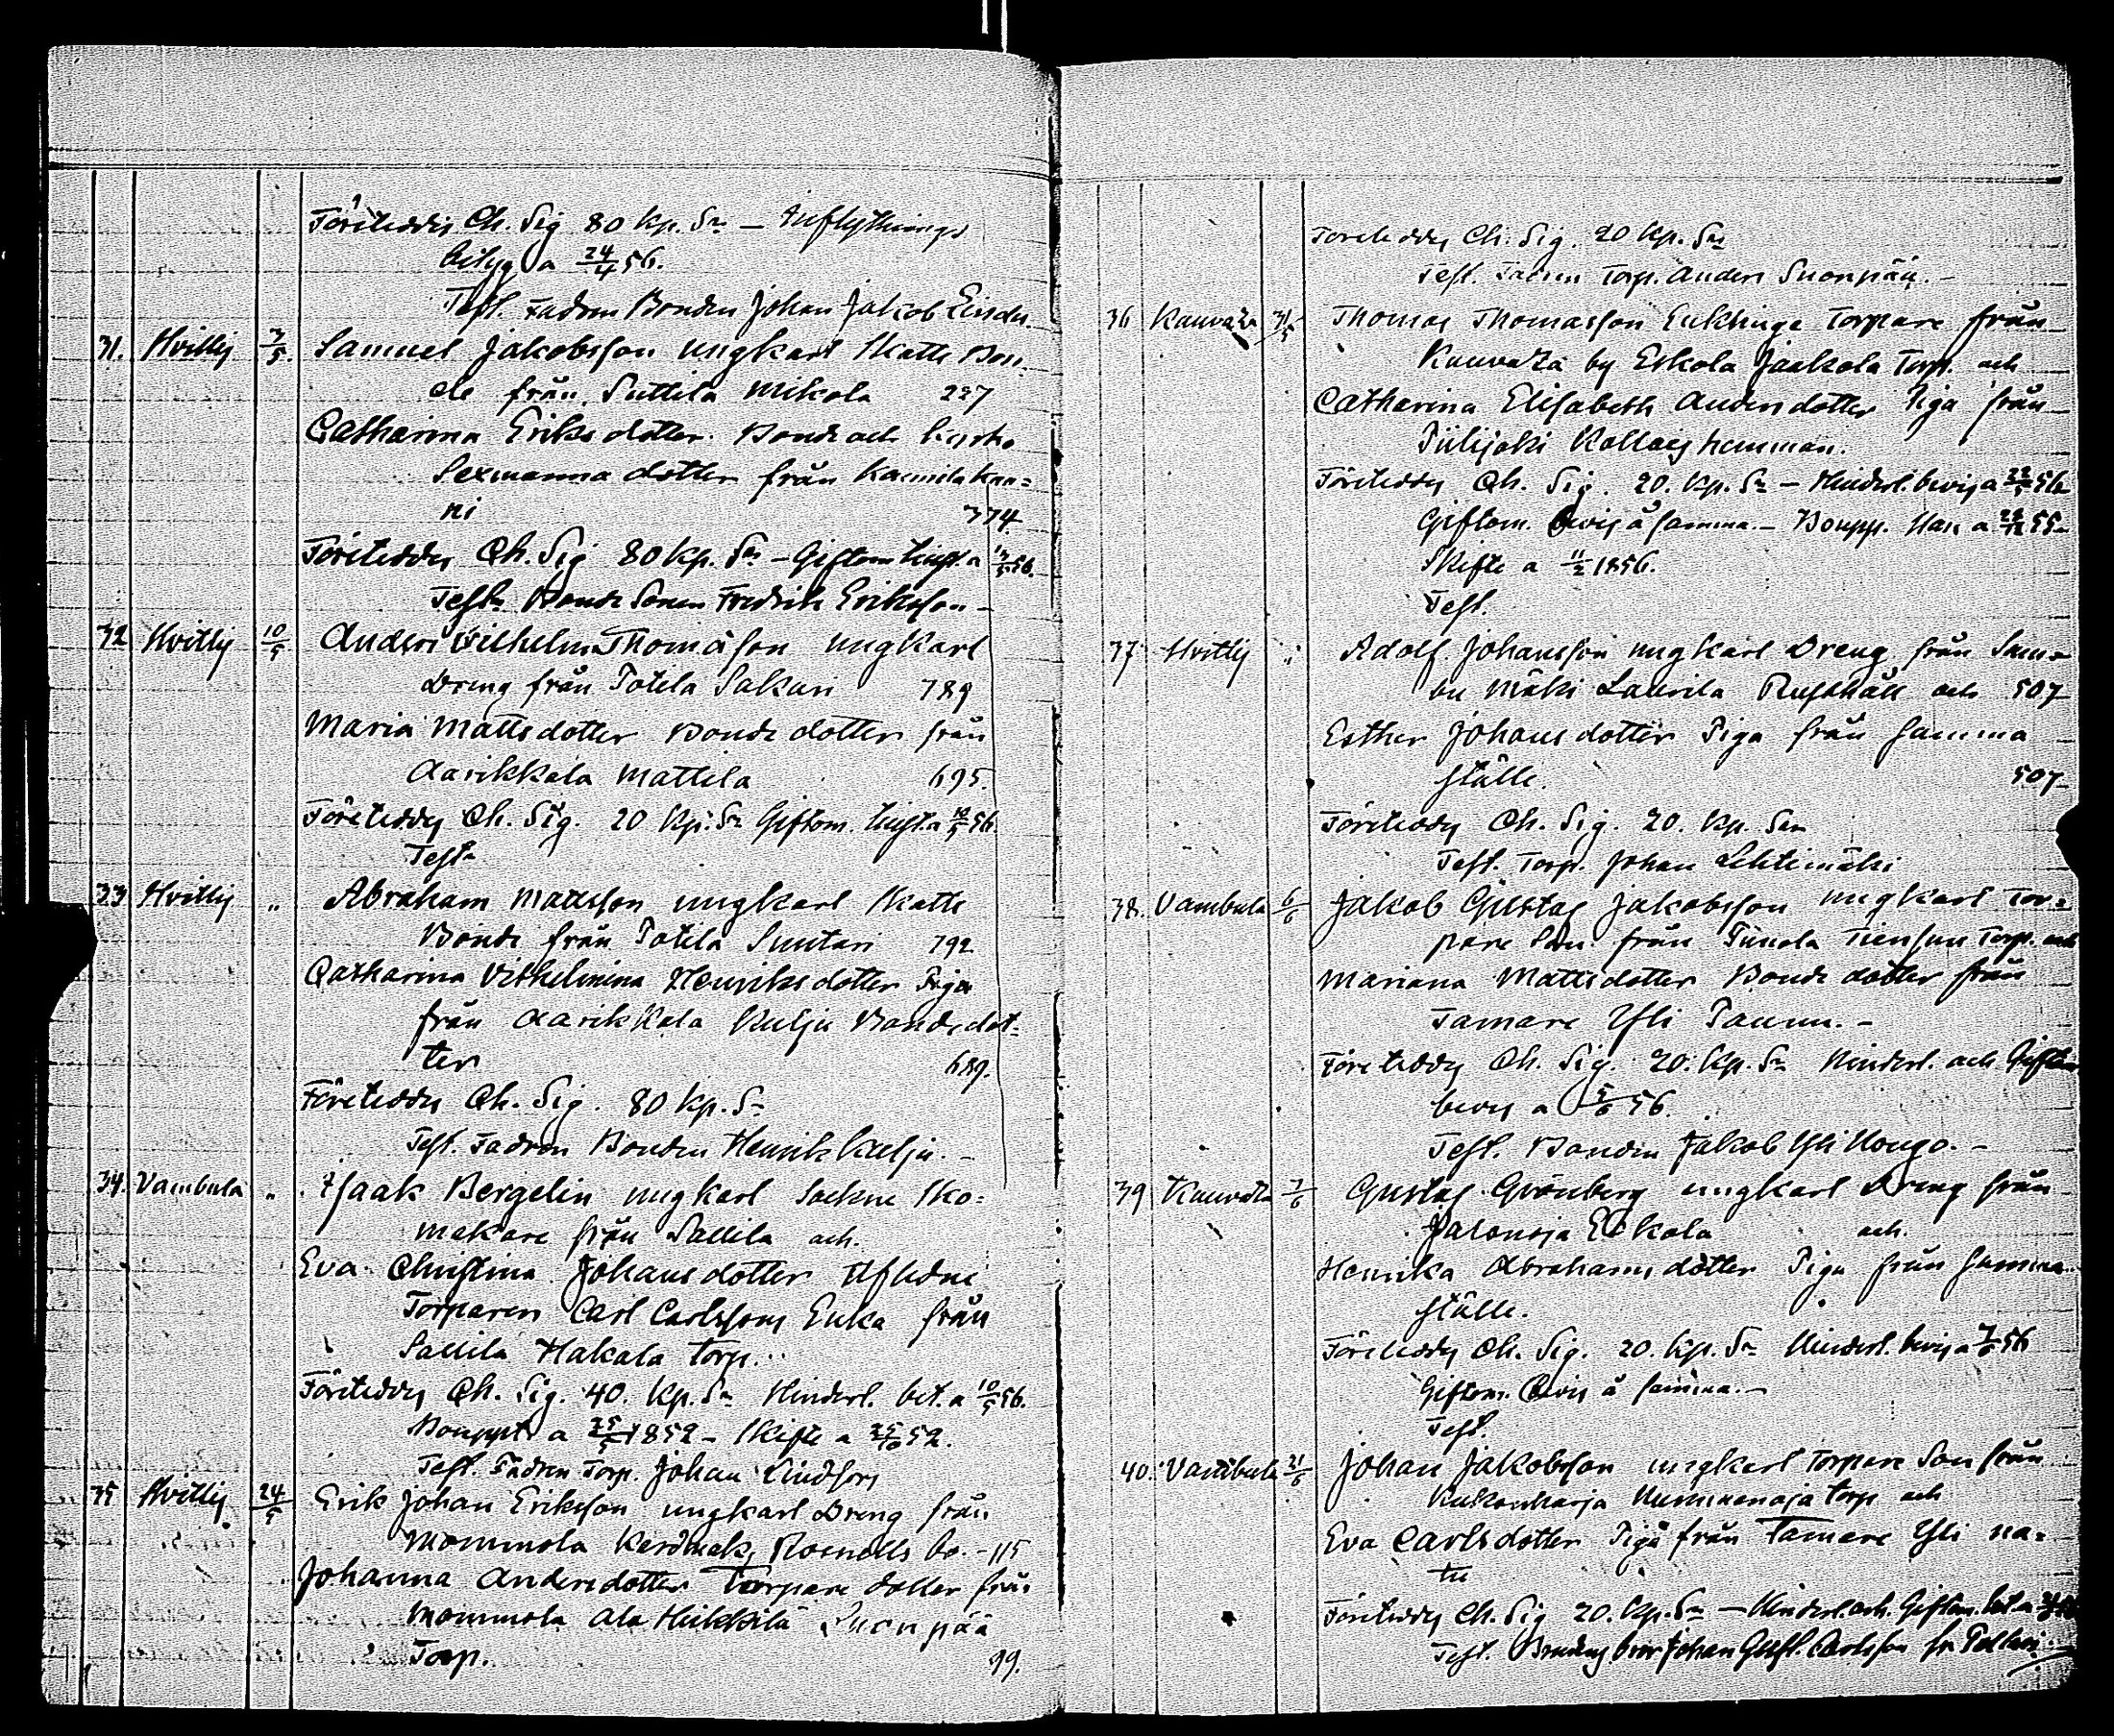 Företeddes Ch. Sig. 80 Kp. Sr – Inflyttnings
betyg a 24/4 56.
Test. Fadren Bonden Johan Jakob
31. Hvittis 3/5. Samuel Jakobsson ungkarl Skatte Bon-
de från Suttila Mikola 227
Catharina Eriksdotter Bonde och Kyrko
Sexmanna dotter från Karhiniemi
ni 374
Företeddes Ch. Sig 80 Kp. Sr – Giftom. a 13/5 56.
Test. Bonde Sonen Fredrik Eriksson –
32 Hvittis 10/5 Anders Vilhelm Thomasson ungkarl
Dreng från Potila Sakari 789
Maria Mattsdotter Bonde dotter från
Aarikkala Mattila 695.
Företeddes Ch. Sig. 20 Kp. Sr Giftom. a 10/5 56.
Test.
33 Hvittis " Abraham Mattsson ungkarl Skatte
Bonde från Potila Suutari 792
Catharina Vilhelmina Henriksdotter Piga
från Aarikkala Kulju Bonde dot-
ter 689.
Företeddes Ch. Sig. 80 Kp. Sr
Test. Fadren Bonden Henrik Kulju. –
34. Vambula " Isaak Bergelin ungkarl Sockne Sko-
makare från Sallila och
Eva Christina Johansdotter Aflidne
Torparen Carl Carlssons Enka från
Sallila Hakala torp.
Företeddes Ch. Sig. 40. Kp. Sr Hinderl. bet. a 10/5 56.
Bouppt. a 25/5 1852 – Skifte a 52.
Test. Fadren Torp. Johan Lindfors
35 Hvittis 24/5 Erik Johan Eriksson ungkarl Dreng från
Mommola bo. – 115
Johanna Andersdotter Torpare dotter från
Mommola Ala Heikkilä Suonpää
Torp. 99.
Företeddes Ch. Sig. 20 Kp. Sr
Test. Fadren Torp. Anders Suonpää. –
36 Kauvatsa 31/5 Thomas Thomasson Enklinge Torpare från
Kauvatsa by Eskola Jaakola Torp. och
Catharina Elisabeth Andersdotter Piga från
Piilijoki hemman.
Företeddes Ch. Sig. 20. Kp. Sr – Hinderl. bevis a 56
Giftom. bevis å samma. – Boupp. a 55 –
Skifte a 11/2 1856.
Test.
37 Hvittis " Adolf Johansson ungkarl Dreng från Sam-
bu Mäki Laurila Rusthåll och 507
Esther Johansdotter Piga från samma
ställe. 507
Företeddes Ch. Sig. 20. Kp. Sr
Test. Torp. Johan Lehtimäki
38. Vambula 6/6 Jakob Gustaf Jakobsson ungkarl Tor-
pare Son från Torp. och
Mariana Mattsdotter Bonde dotter från
Tamare Yli Paunu. –
Företeddes Ch. Sig. 20. Kp. Sr Hinderl. och Giftom
bevis a 5/6 56.
Test. Bonden Jakob Yli Hongo. –
39 Kauvatsa 7/6 Gustaf Grönberg ungkarl Dreng från
Jalonoja Eskola och
Henrika Abrahamsdotter Piga från samma
ställe.
Företeddes Ch. Sig. 20. Kp. Sr Hinderl. bevis a 7/6 56
Giftom. bevis å samma. –
Test.
40. Vambula 21/6 Johan Jakobsson ungkarl Torpare Son från
Kukonharja Hummanoja torp och
Eva Carlsdotter Piga från Tamare Yli na-
tu
Företeddes Ch. Sig 20. Kp. Sr – Hinderl. och Giftom. bet a
Test. Brudens bror Johan Gust. Carlsson fr